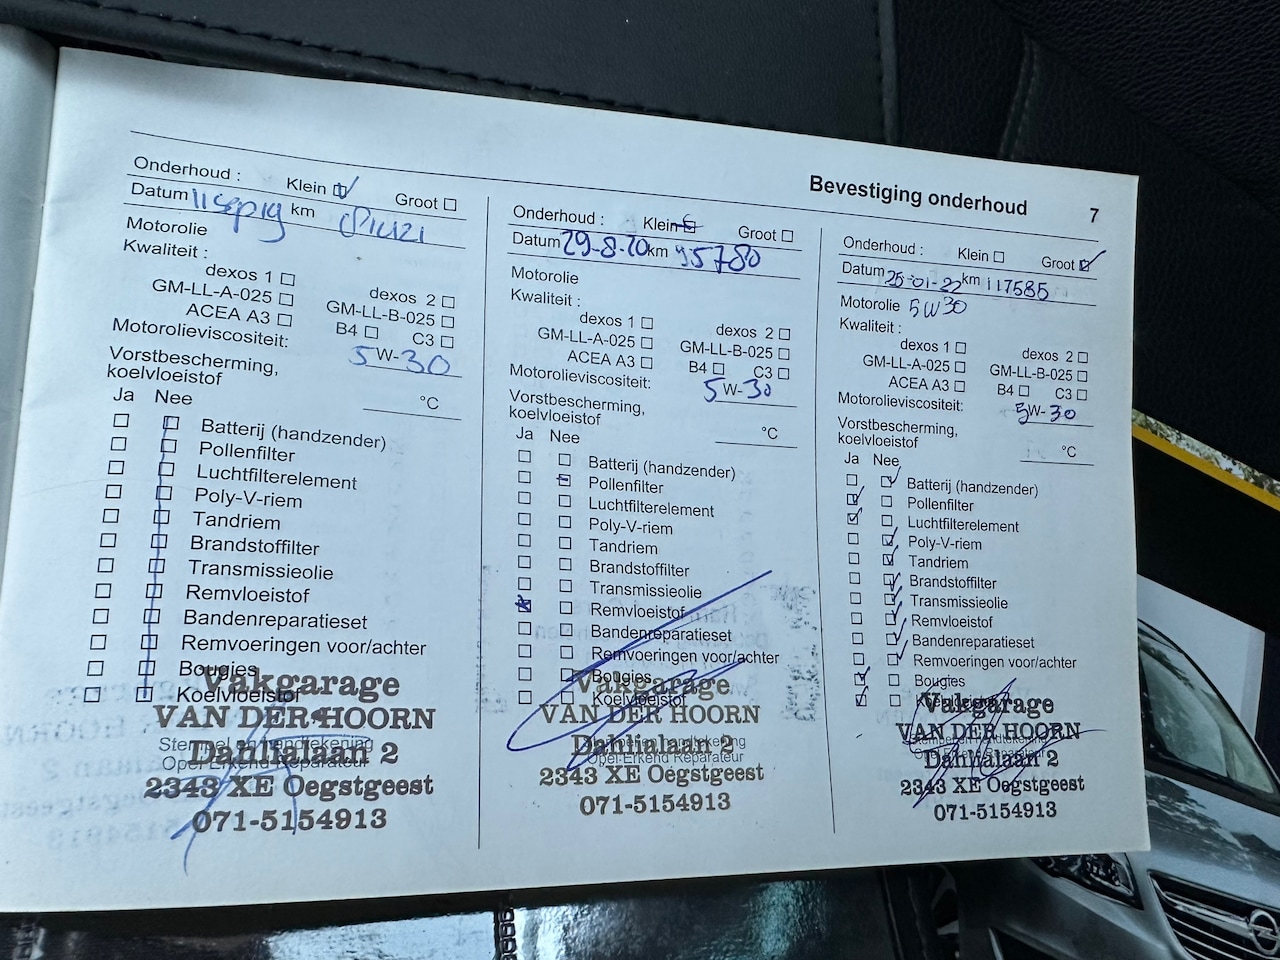 Bevestiging onderhoud 7
Onderhoud : Klein Groot
Datum 11 sep 19 km
Motorolie
Kwaliteit :
dexos 1 dexos 2
GM-LL-A-025 GM-LL-B-025
ACEA A3 B4 C3
Motorolieviscositeit: 5W-30
Vorstbescherming,
koelvloeistof °C
Ja Nee
Batterij (handzender)
Pollenfilter
Luchtfilterelement
Poly-V-riem
Tandriem
Brandstoffilter
Transmissieolie
Remvloeistof
Bandenreparatieset
Remvoeringen voor/achter
Bougies
Koelvloeistof
Stempel en handtekening
Opel Erkend Reparateur
Vakgarage
VAN DER HOORN
Dahlialaan 2
2343 XE Oegstgeest
071-5154913
Onderhoud : Klein Groot
Datum 29-8-20 km 95780
Motorolie
Kwaliteit :
dexos 1 dexos 2
GM-LL-A-025 GM-LL-B-025
ACEA A3 B4 C3
Motorolieviscositeit: 5W-30
Vorstbescherming,
koelvloeistof °C
Ja Nee
Batterij (handzender)
Pollenfilter
Luchtfilterelement
Poly-V-riem
Tandriem
Brandstoffilter
Transmissieolie
Remvloeistof
Bandenreparatieset
Remvoeringen voor/achter
Bougies
Koelvloeistof
Stempel en handtekening
Opel Erkend Reparateur
Vakgarage
VAN DER HOORN
Dahlialaan 2
2343 XE Oegstgeest
071-5154913
Onderhoud : Klein Groot
Datum 25-01-22 km 117585
Motorolie 5W30
Kwaliteit :
dexos 1 dexos 2
GM-LL-A-025 GM-LL-B-025
ACEA A3 B4 C3
Motorolieviscositeit: 5W-30
Vorstbescherming,
koelvloeistof °C
Ja Nee
Batterij (handzender)
Pollenfilter
Luchtfilterelement
Poly-V-riem
Tandriem
Brandstoffilter
Transmissieolie
Remvloeistof
Bandenreparatieset
Remvoeringen voor/achter
Bougies
Koelvloeistof
Stempel en handtekening
Opel Erkend Reparateur
Vakgarage
VAN DER HOORN
Dahlialaan 2
2343 XE Oegstgeest
071-5154913